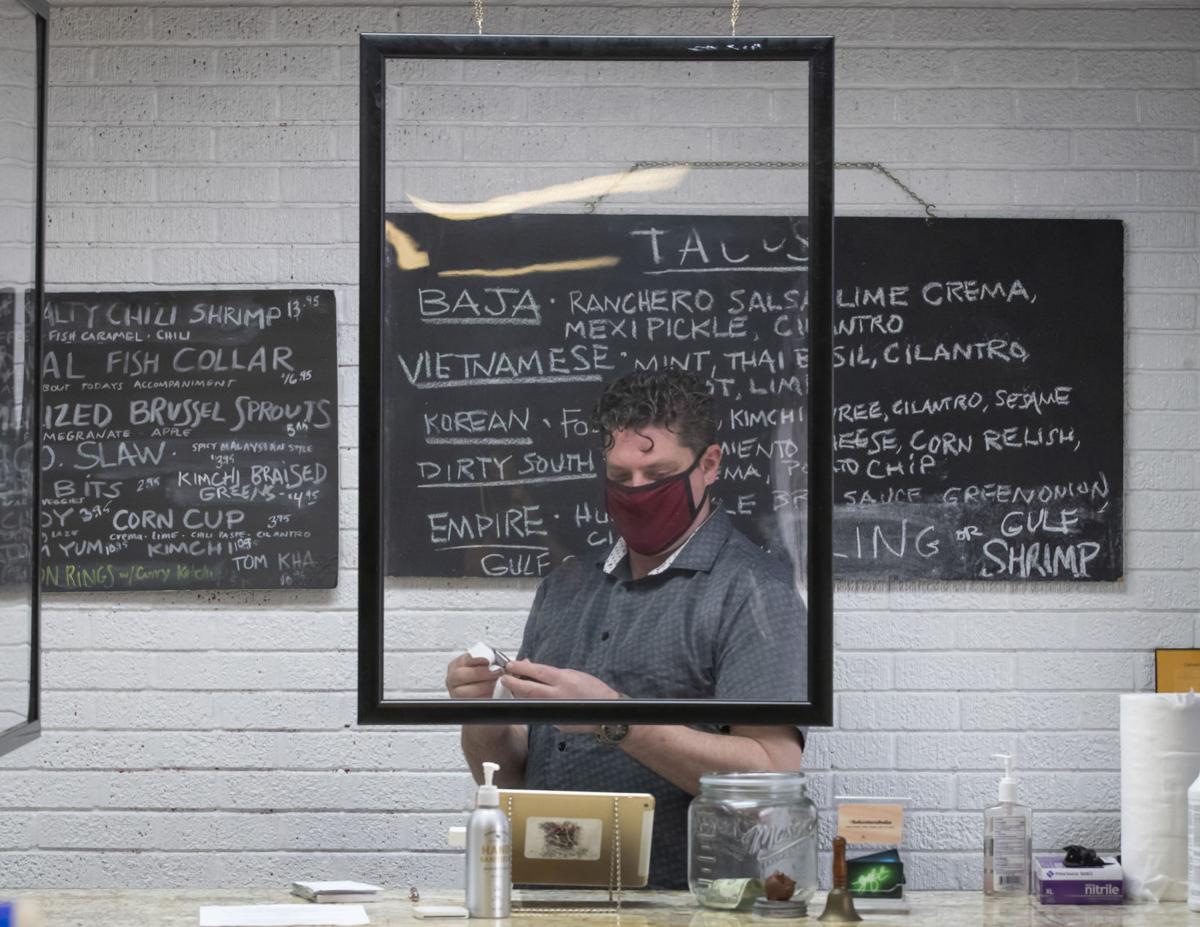 ALTY CHILI SHRIMP 13.95
FISH CARAMEL · CHILI
AL FISH COLLAR
BOUT TODAYS ACCOMPANIMENT $16.95
IZED BRUSSEL SPROUTS
MEGRANATE APPLE
O. SLAW · SPICY MALAYSIAN STYLE
$3.95
BITS 2.95 KIMCHI BRAISED
GREENS $4.95
VEGGIES
DY 3.95 CORN CUP 3.95
CREMA · LIME · CHILI PASTE · CILANTRO
YUM 10.95 KIMCHI TOM KHA
ON RINGS w/Curry
TACOS
BAJA · RANCHERO SALSA LIME CREMA,
MEXI PICKLE, CILANTRO
VIETNAMESE · MINT, THAI BASIL, CILANTRO,
LIME
KOREAN · KIMCHI PUREE, CILANTRO, SESAME
DIRTY SOUTH PIMIENTO CHEESE, CORN RELISH,
POTATO CHIP
EMPIRE · SAUCE GREEN ONION
GULF LING OR GULF
SHRIMP
HAND
nitrile
XL